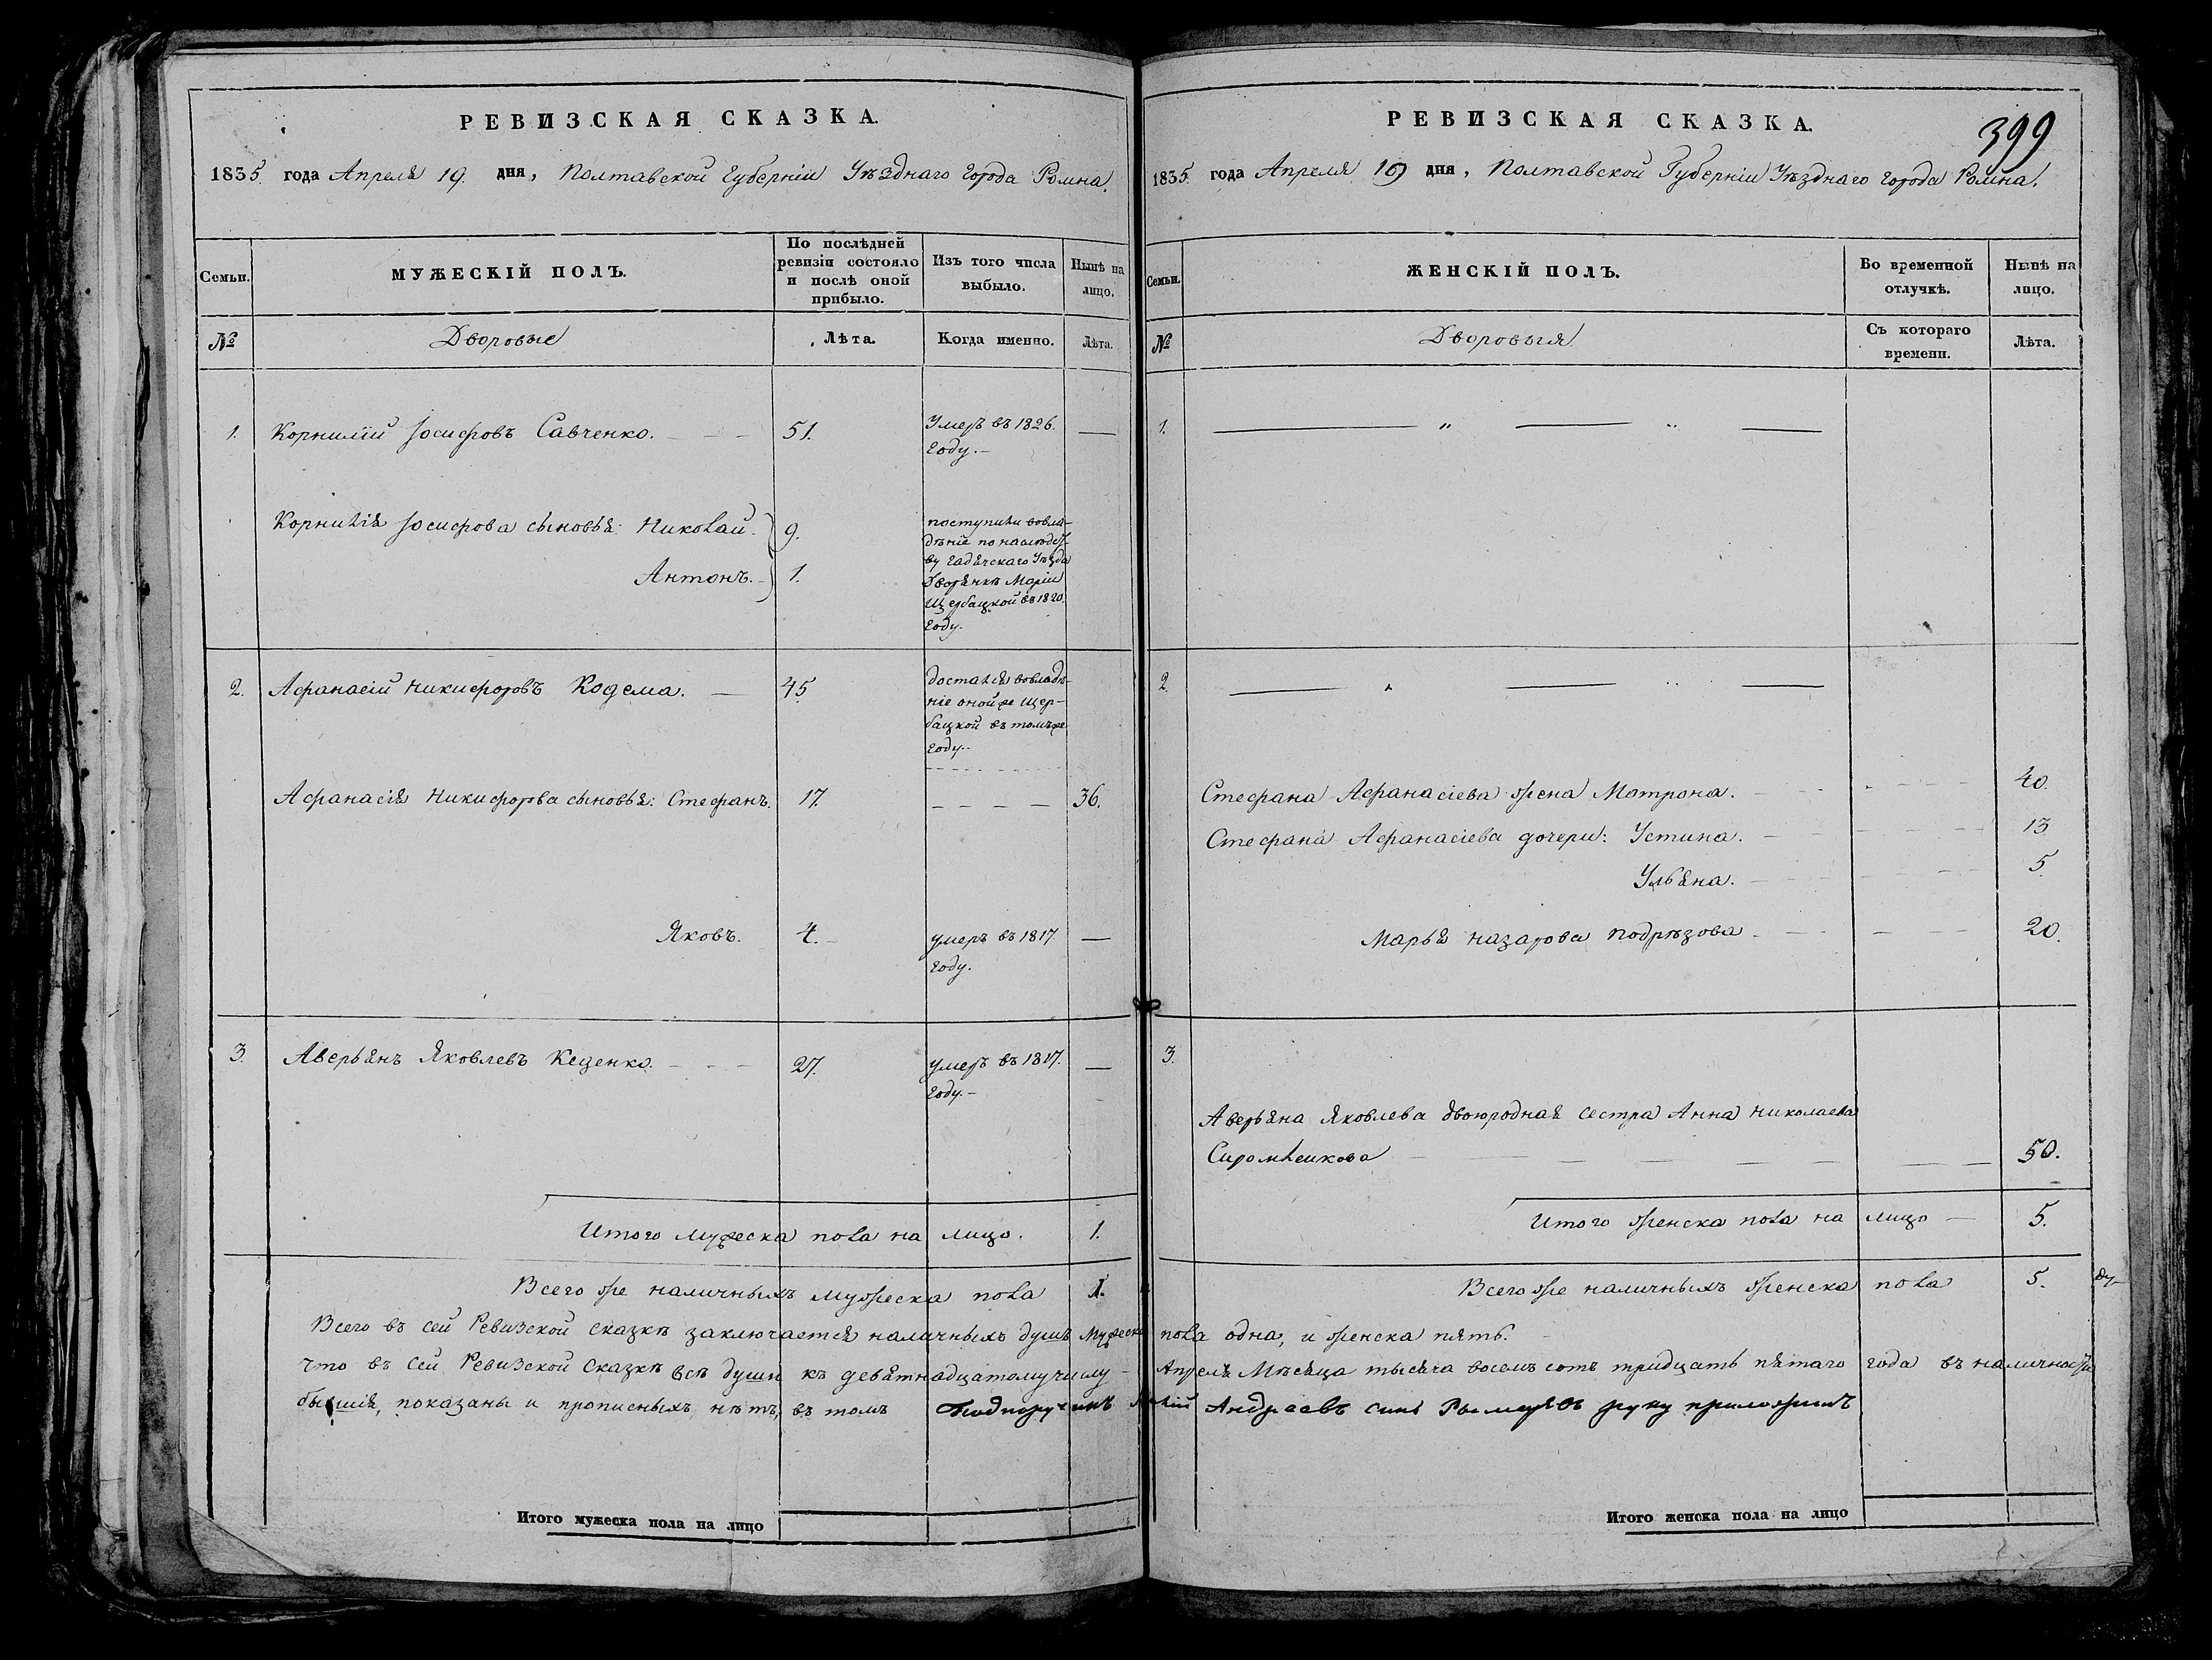 РЕВИЗСКАЯ СКАЗКА.
1835 года Апреля 19 дня, Полтавской Губерніи Уѣзднаго Города Ромна.
Семьи.
МУЖЕСКІЙ ПОЛЪ.
По послѣдней ревизіи состояло и послѣ оной прибыло.
Изъ того числа выбыло.
Нынѣ на лицо.
№
Дворовые
Лѣта.
Когда именно.
Лѣта.
1. Корнилій Іосифовъ Савченко. 51. Умеръ въ 1826.
году.
Корнилія Іосифова сыновья: Николай. 9.
Антонъ. 1.
поступили вовла-
дѣніе по наслѣдст-
ву Гадячскаго Уѣзда
Дворянкѣ Маріи
Щербацкой въ 1820.
году.
2. Афанасій Никифоровъ Кодема. 45
достался вовладѣ-
ніе онойже Щер-
бацкой въ томъже
году.
Афанасія Никифорова сыновья: Стефанъ. 17. 36.
Яковъ. 4. умеръ въ 1817
году.
3. Аверьянъ Яковлевъ Кеценко. 27. умеръ въ 1817.
году.
Итого мужеска пола на лицо. 1.
Всего же наличныхъ мужеска пола 1.
РЕВИЗСКАЯ СКАЗКА.
399
1835 года Апреля 19 дня, Полтавской Губерніи Уѣзднаго города Ромна.
Семьи.
ЖЕНСКІЙ ПОЛЪ.
Во временной отлучкѣ.
Нынѣ на лицо.
№
Дворовыя
Съ котораго времени.
Лѣта.
1.
2.
Стефана Афанасіева жена Матрона. 40.
Стефана Афанасіева дочери: Устина. 13
Ульяна. 5
Марья Назарова Подрѣзова 20.
3.
Аверьяна Яковлева двоюродная сестра Анна Николаева
Сиромлеикова 50.
Итого женска пола на лицо 5.
Всего же наличныхъ женска пола 5.
Всего въ сей Ревизской сказкѣ заключается наличныхъ душъ мужеска пола одна, и женска пять.
что въ сей Ревизской сказкѣ всѣ души къ девятнадцатому числу Апреля Мѣсяца тысяча восемъ сотъ тридцать пятаго года въ наличности
бывшія, показаны и прописныхъ нѣтъ, въ томъ Андреевъ синъ руку приложилъ
Итого мужеска пола на лицо
Итого женска пола на лицо